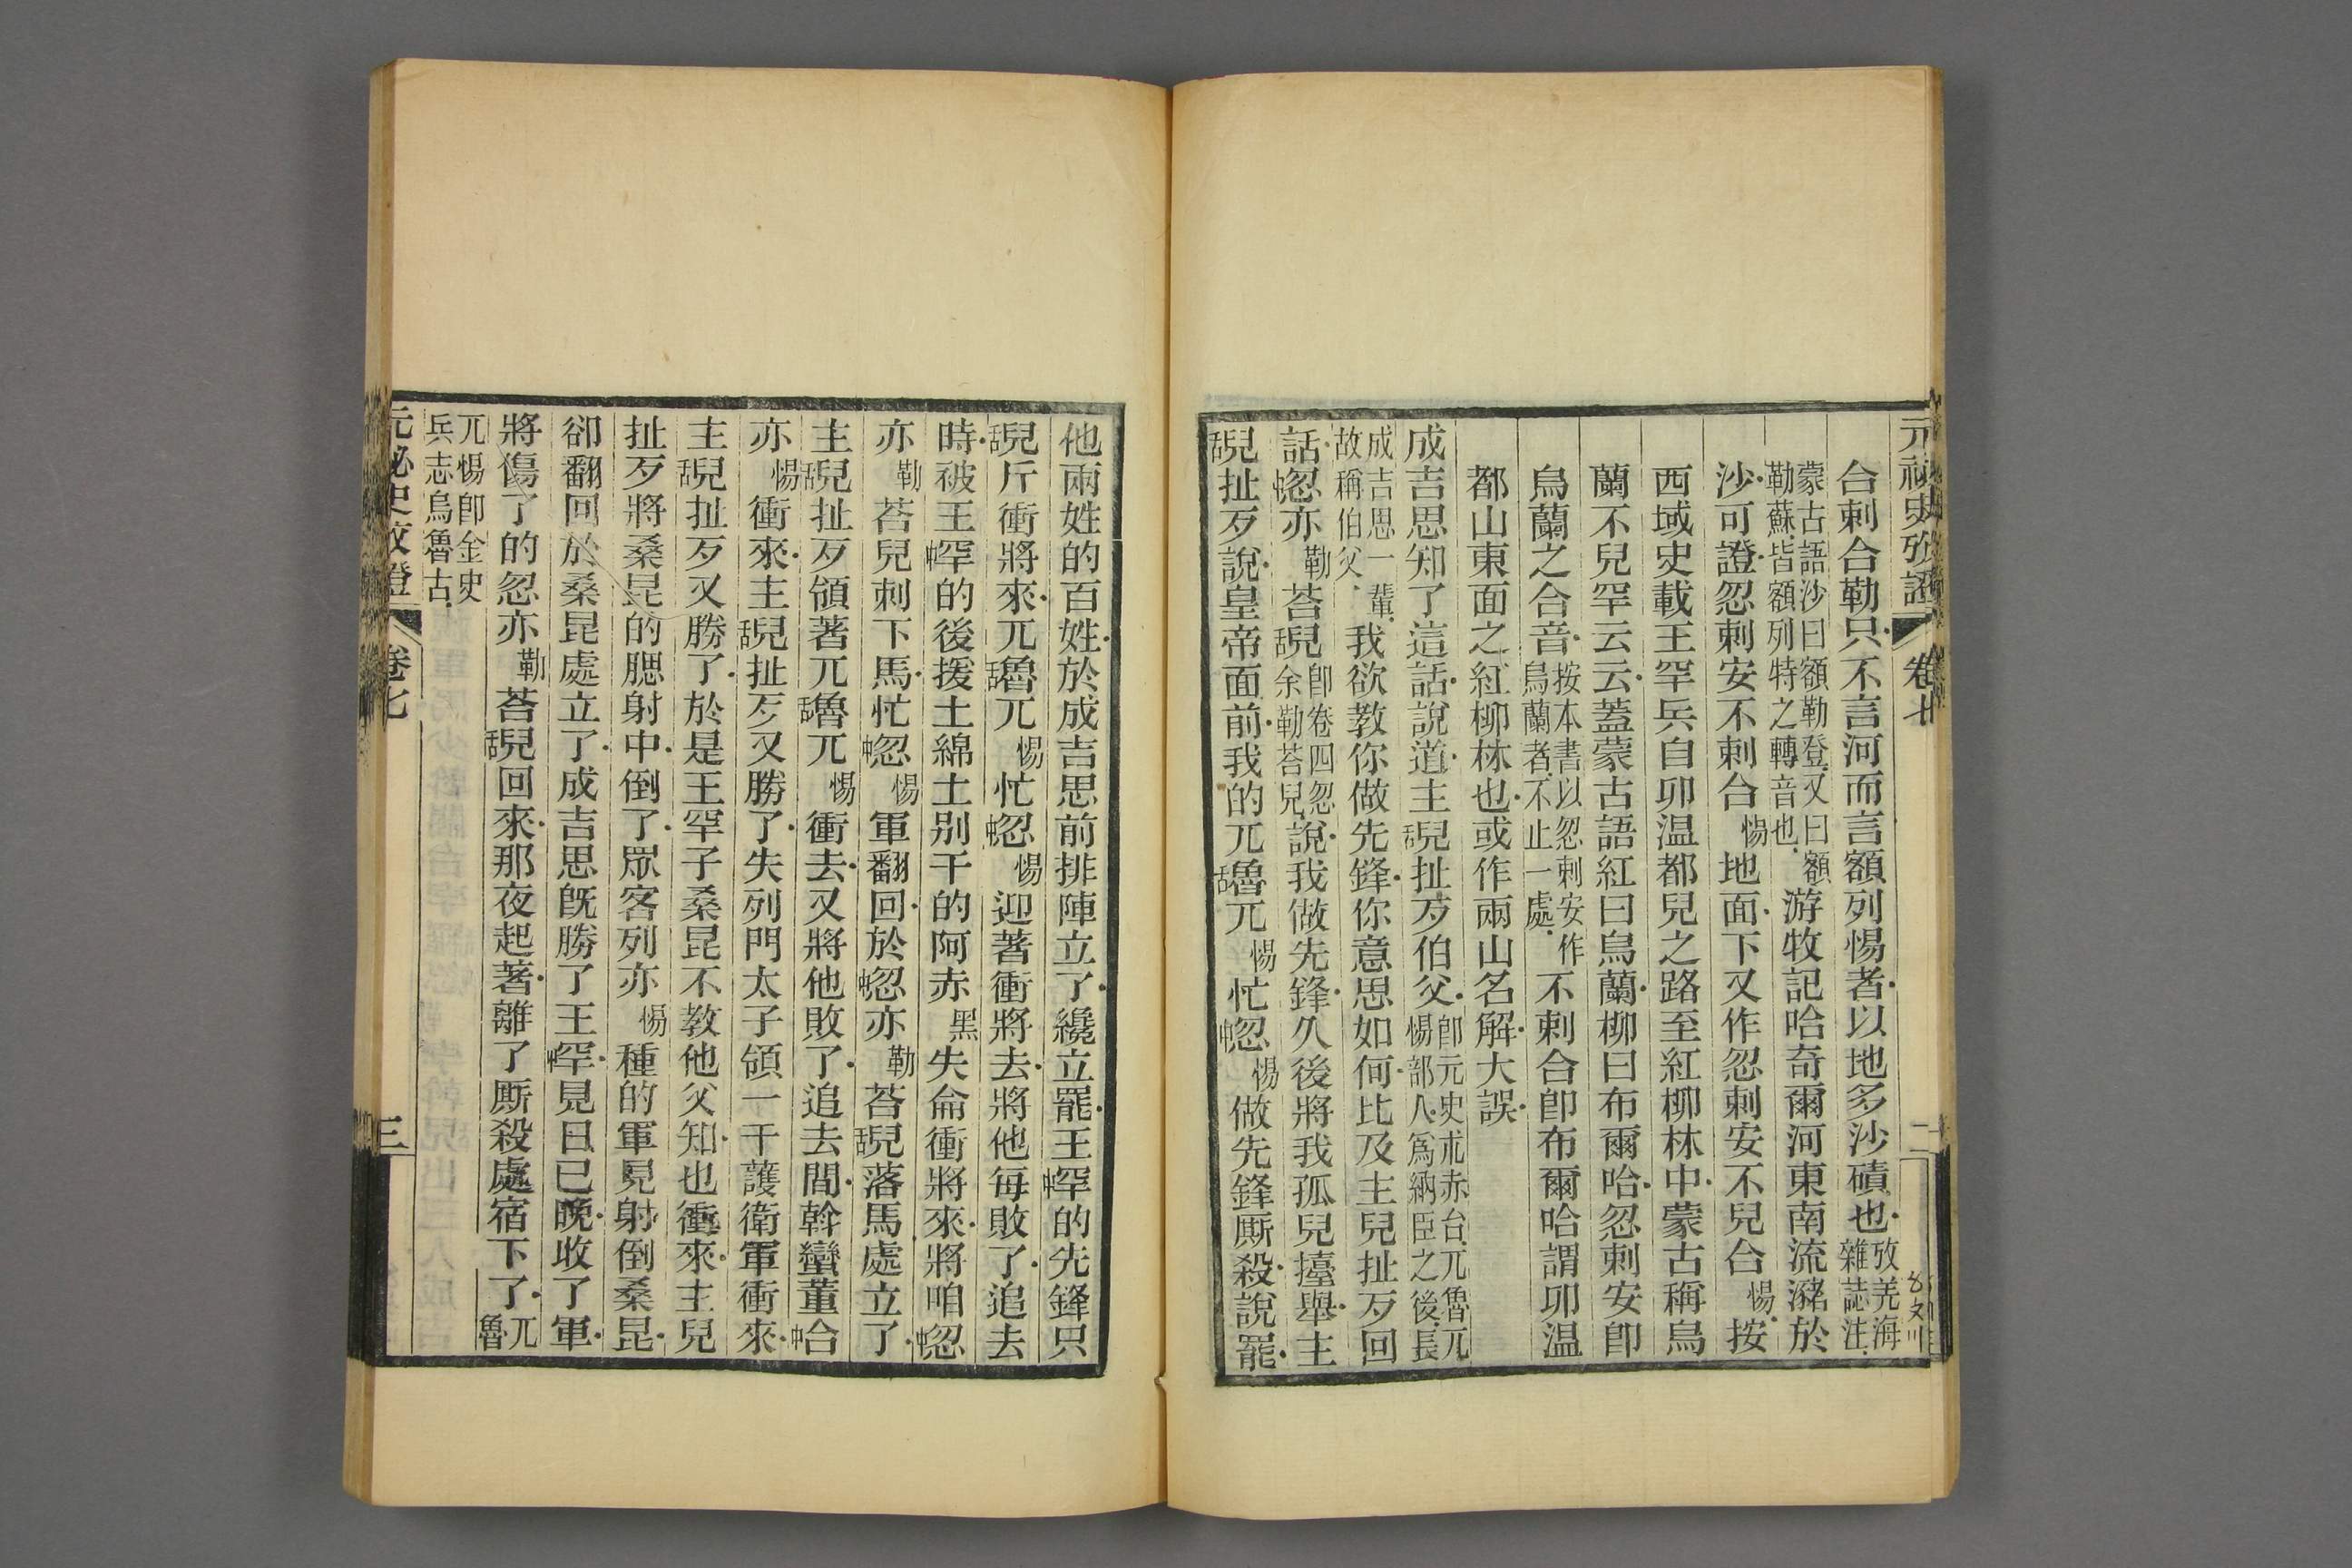 元秘史攷證 卷七 二
合剌合勒只不言河而言額列惕者以地多沙磧也攷羌海雜誌注
蒙古語沙曰額勒登又曰額勒蘇皆額列特之轉音也游牧記哈奇爾河東南流瀦於
沙可證忽剌安不剌合惕地面下又作忽剌安不兒合惕按
西域史載王罕兵自卯温都兒之路至紅柳林中蒙古稱烏
蘭不兒罕云云蓋蒙古語紅曰烏蘭柳曰布爾哈忽剌安卽
烏蘭之合音按本書以忽剌安作烏蘭者不止一處不剌合卽布爾哈謂卯温
都山東面之紅柳林也或作兩山名解大誤
成吉思知了這話說道主舌兒扯歹伯父卽元史朮赤台兀魯兀惕部人爲納臣之後長
成吉思一輩故稱伯父我欲教你做先鋒你意思如何比及主兒扯歹回
話中忽亦勒荅舌兒卽卷四忽余勒荅兒說我做先鋒久後將我孤兒擡舉主
舌兒扯歹說皇帝面前我的兀舌魯兀惕忙中忽惕做先鋒厮殺說罷
他兩姓的百姓於成吉思前排陣立了纔立罷王中罕的先鋒只
舌兒斤衝將來兀舌魯兀惕忙中忽惕迎著衝將去將他每敗了追去
時被王中罕的後援土綿土别干的阿赤黑失侖衝將來將咱中忽
亦勒荅兒刺下馬忙中忽惕軍翻回於中忽亦勒荅舌兒落馬處立了
主舌兒扯歹領著兀舌魯兀惕衝去又將他敗了追去間斡蠻董中合
亦惕衝來主舌兒扯歹又勝了失列門太子領一千護衛軍衝來
主舌兒扯歹又勝了於是王罕子桑昆不教他父知也衝來主兒
扯歹將桑昆的腮射中倒了眾客列亦惕種的軍見射倒桑昆
卻翻回於桑昆處立了成吉思旣勝了王中罕見日已晚收了軍
將傷了的忽亦勒荅舌兒回來那夜起著離了厮殺處宿下了兀魯
兀惕卽金史兵志烏魯古
元秘史攷證 卷七 三